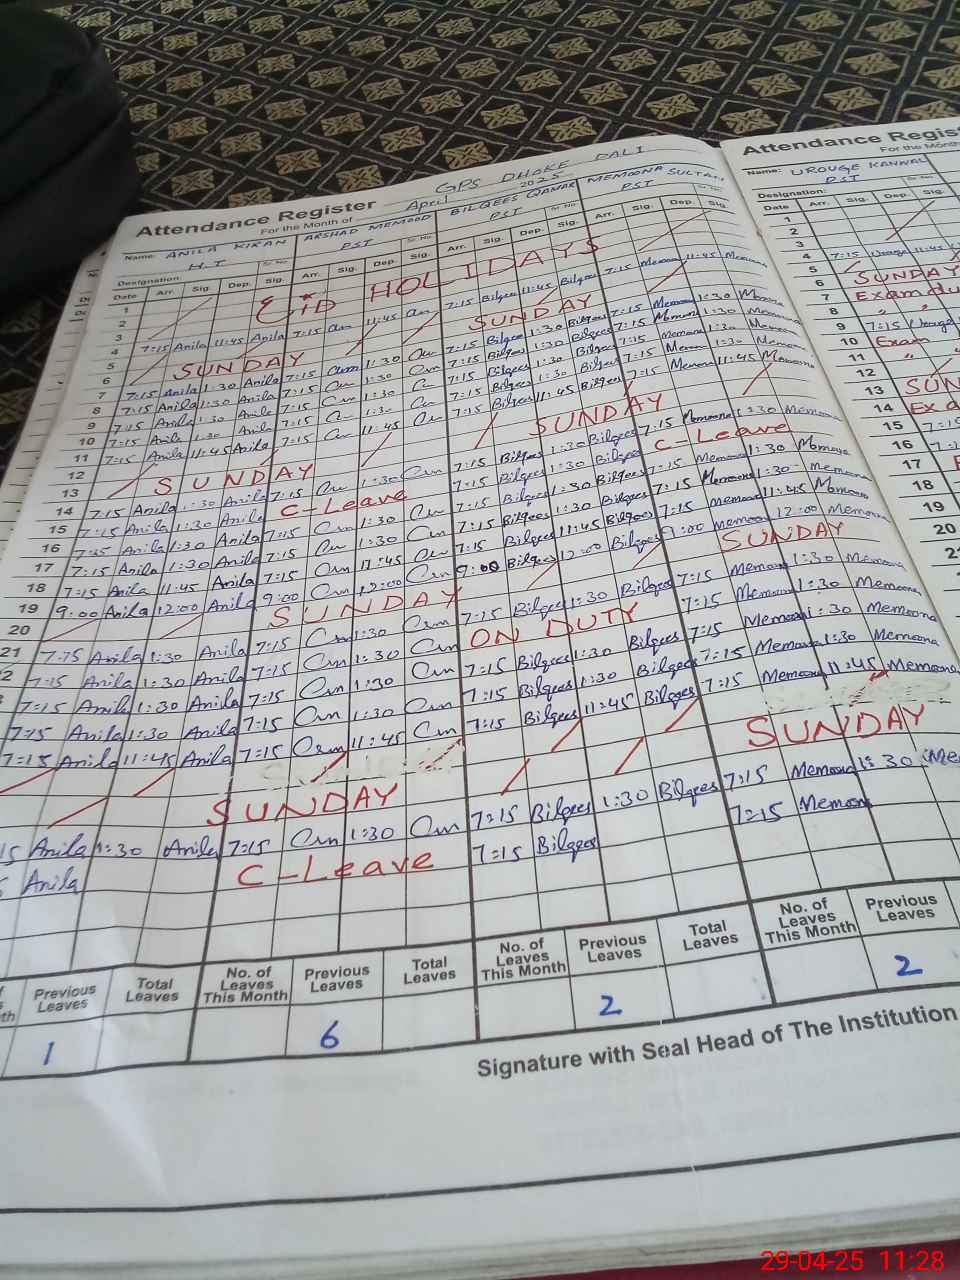 GPS DHOKE DALI
Attendance Register
For the Month of April 2025
Name: ANILA KIRAN ARSHAD MEMOOD BILQEES QAMAR MEMOONA SULTAN
Designation: H.T PST PST PST
Date Arr. Sig. Dep. Sig. Arr. Sig. Dep. Sig. Arr. Sig. Dep. Sig. Arr. Sig. Dep. Sig.
1
2 EID HOLIDAYS
3
4 7:15 Anila 11:45 Anila 7:15 11:45 7:15 Bilqees 11:45 Bilqees 7:15 Memoona 11:45 Memoona
5
6 SUNDAY SUNDAY
7 7:15 Anila 1:30 Anila 7:15 1:30 7:15 Bilqees 1:30 Bilqees 7:15 Memoona 1:30 Memoona
8 7:15 Anila 1:30 Anila 7:15 1:30 7:15 Bilqees 1:30 Bilqees 7:15 Memoona 1:30 Memoona
9 7:15 Anila 1:30 Anila 7:15 1:30 7:15 Bilqees 1:30 Bilqees 7:15 Memoona 1:30 Memoona
10 7:15 Anila 1:30 Anila 7:15 1:30 7:15 Bilqees 1:30 Bilqees 7:15 Memoona 1:30 Memoona
11 7:15 Anila 11:45 Anila 7:15 11:45 7:15 Bilqees 11:45 Bilqees 7:15 Memoona 11:45 Memoona
12
13 SUNDAY SUNDAY
14 7:15 Anila 1:30 Anila 7:15 1:30 7:15 Bilqees 1:30 Bilqees 7:15 Memoona 1:30 Memoona
15 7:15 Anila 1:30 Anila C-Leave 7:15 Bilqees 1:30 Bilqees C-Leave
16 7:15 Anila 1:30 Anila 7:15 1:30 7:15 Bilqees 1:30 Bilqees 7:15 Memoona 1:30 Memoona
17 7:15 Anila 1:30 Anila 7:15 1:30 7:15 Bilqees 1:30 Bilqees 7:15 Memoona 1:30 Memoona
18 7:15 Anila 11:45 Anila 7:15 11:45 7:15 Bilqees 11:45 Bilqees 7:15 Memoona 11:45 Memoona
19 9:00 Anila 12:00 Anila 9:00 12:00 9:00 Bilqees 12:00 Bilqees 9:00 Memoona 12:00 Memoona
20 SUNDAY SUNDAY
21 7:15 Anila 1:30 Anila 7:15 1:30 7:15 Bilqees 1:30 Bilqees 7:15 Memoona 1:30 Memoona
7:15 Anila 1:30 Anila 7:15 1:30 ON DUTY 7:15 Memoona 1:30 Memoona
7:15 Anila 1:30 Anila 7:15 1:30 7:15 Bilqees 1:30 Bilqees 7:15 Memoona 1:30 Memoona
7:15 Anila 1:30 Anila 7:15 1:30 7:15 Bilqees 1:30 Bilqees 7:15 Memoona 1:30 Memoona
7:15 Anila 11:45 Anila 7:15 11:45 7:15 Bilqees 11:45 Bilqees 7:15 Memoona 11:45 Memoona
SUNDAY SUNDAY
Anila 1:30 Anila 7:15 1:30 7:15 Bilqees 1:30 Bilqees 7:15 Memoona 1:30
Anila C-Leave 7:15 Bilqees 7:15 Memoona
Previous Leaves Total Leaves No. of Leaves This Month Previous Leaves Total Leaves No. of Leaves This Month Previous Leaves Total Leaves No. of Leaves This Month Previous Leaves
1 6 2 2
Signature with Seal Head of The Institution
Attendance Regist
For the Month
Name: UROUGE KANWAL
Designation: PST
Date Arr. Sig. Dep. Sig.
1
2
3
4 7:15 11:45
5
6 SUNDAY
7
8
9 7:15
10 Exam
11
12
13 SUN
14
15 7:15
16
17
18
19
20
29-04-25 11:28